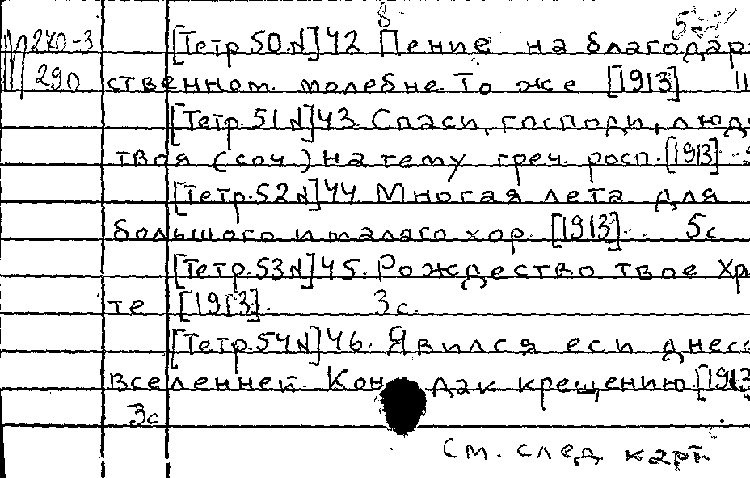 8
М 270-3 [Тетр.50.№]42 Пение на благодар
290 ственном молебне. То же [1913] 11
[Тетр.51№]43. Спаси, господи, люд
твоя (соч.) на тему греч. росп. [1913]
[Тетр.52№]44. Многая лета для
большого и малаго хор. [1913] 5с
[Тетр.53№]45. Рождество твое Хр
те [1913]. 3с.
[Тетр.54№]46. Явился еси днесь
вселенней. Кондак крещению [1913
3с
См. след карт.